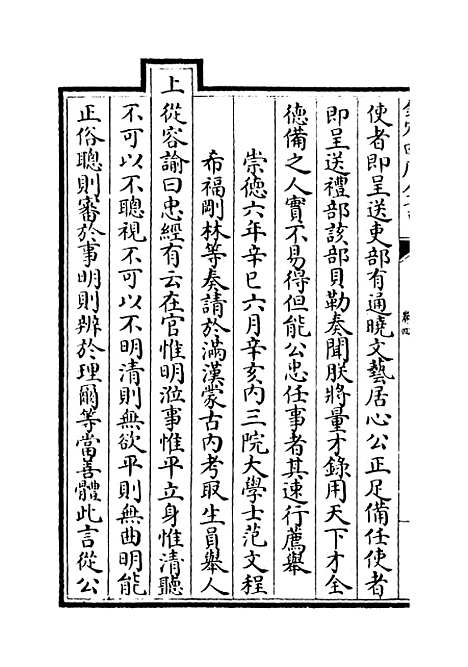 使者即呈送吏部有通曉文藝居心公正足備任使者
即呈送禮部該部貝勒奏聞朕將量才錄用天下才全
德備之人實不易得但能公忠任事者其速行薦舉
崇德六年辛巳六月辛亥內三院大學士范文程
希福剛林等奏請於滿漢蒙古內考取生員舉人
上從容諭曰忠經有云在官惟明涖事惟平立身惟清聽
不可以不聰視不可以不明清則無欲平則無曲明能
正俗聰則審於事明則辨於理爾等當善體此言從公